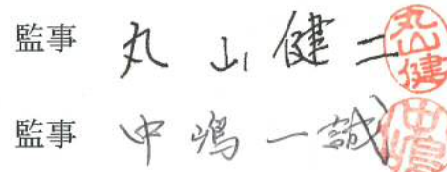 監事 丸山健二 丸山健
監事 中嶋一誠 中嶋